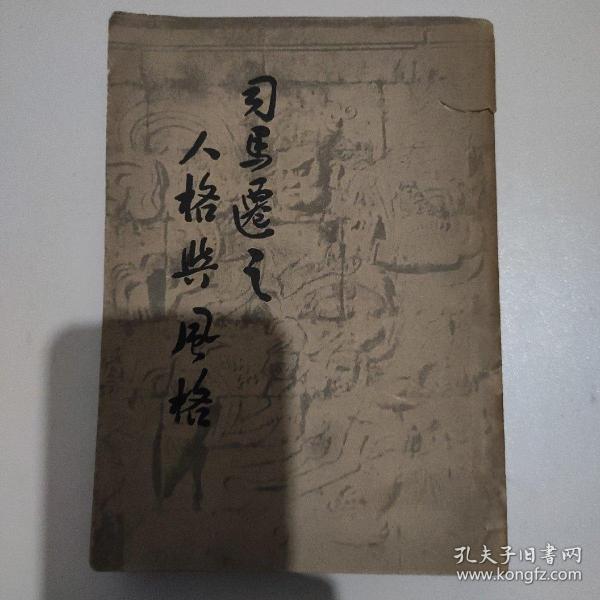 司馬遷之
人格與風格
孔夫子旧書网
www.kongfz.com